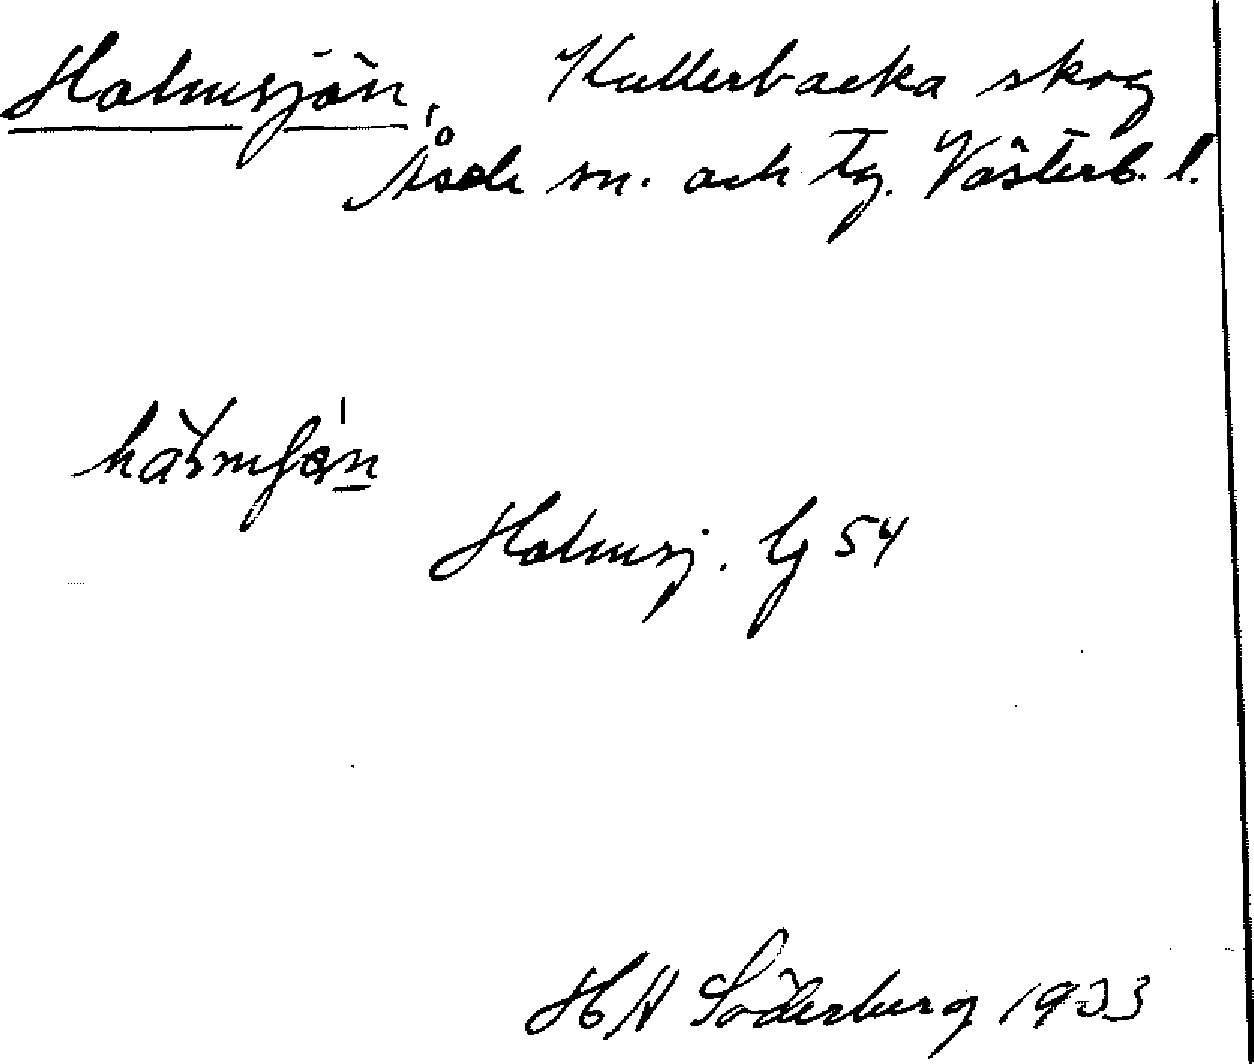 Holmsjön, Kullerbacka skog
Åsele sn. och tg. Västerb. l.
Holmsj. Gj 54
H A Söderberg 1933